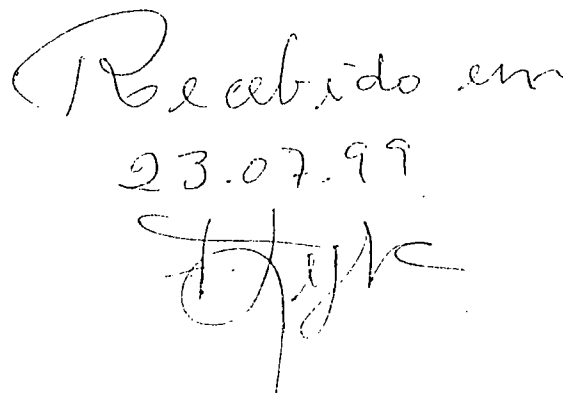 Recebido em
23.07.99